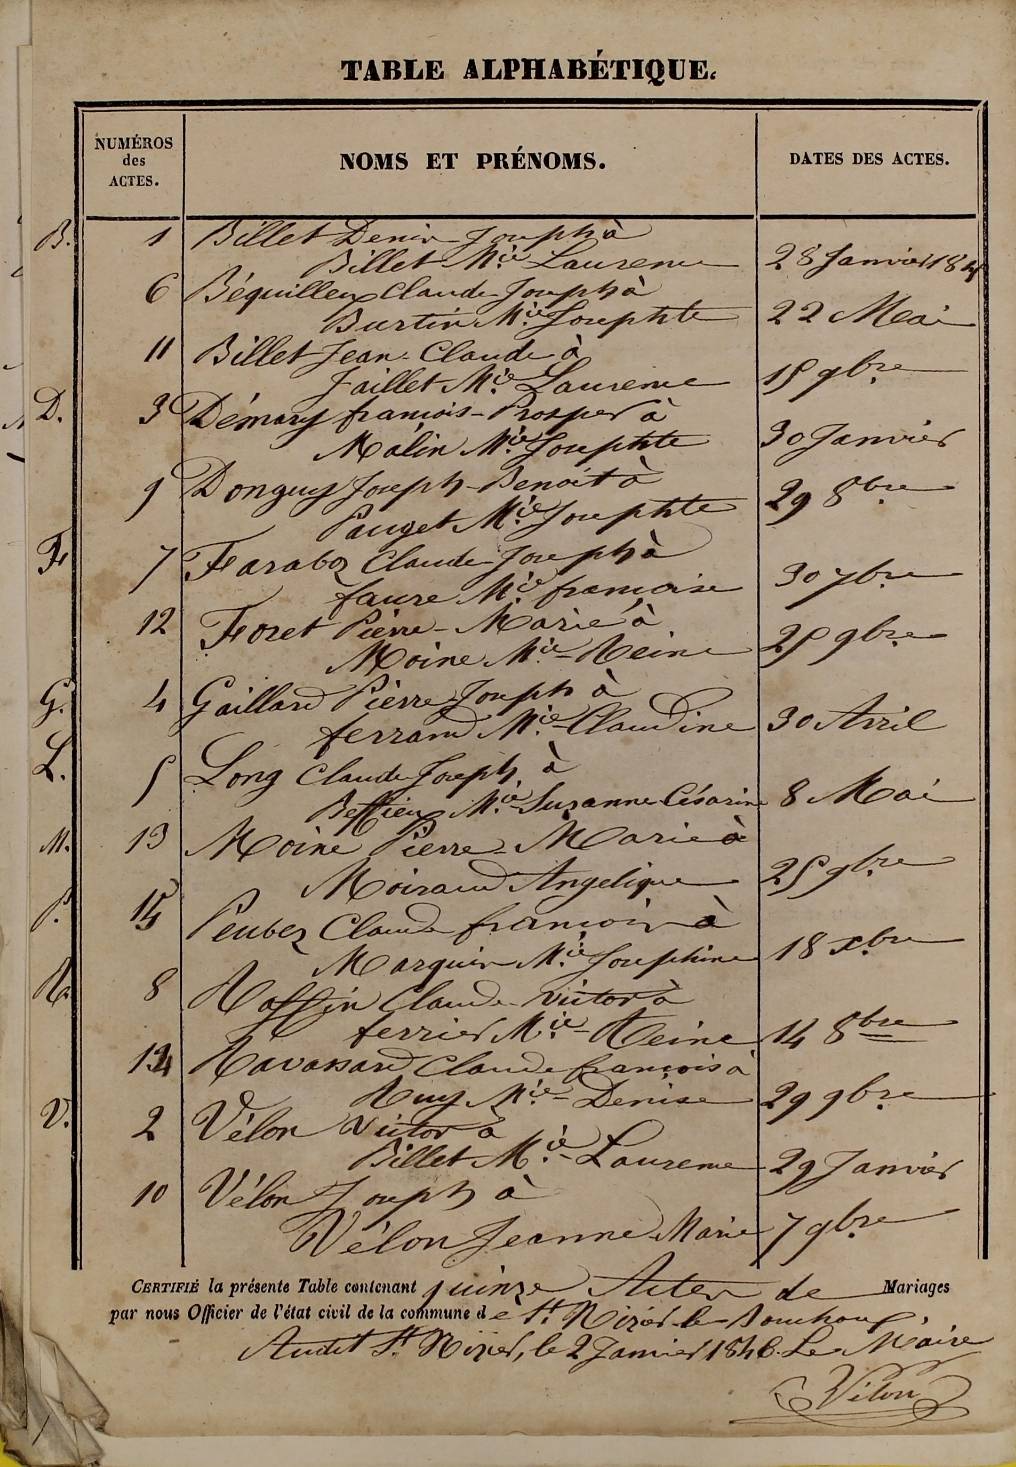 TABLE ALPHABÉTIQUE.
NUMÉROS
des
ACTES.
NOMS ET PRÉNOMS.
DATES DES ACTES.
B. 1 Billet Denis Joseph à
Billet Mie Laurence 28 Janvier 184
6 Béquilleux Claude Joseph à
Burtin Mie Josephte 22 Mai
11 Billet Jean-Claude à
Jaillet Mie Laurence 15 9bre
D. 3 Démary françois-Prosper à
Mâlin Mie Josephte 30 Janvier
9 Donguy Joseph-Benoît à
Pauget Mie Josephte 29 8bre
F. 7 Faraboz Claude Joseph à
faure Mie françoise 30 7bre
12 Foret Pierre-Marie à
Moine Mie-Reine 25 9bre
G. 4 Gaillard Pierre Joseph à
ferrand Mie-Claudine 30 Avril
L. 5 Long Claude Joseph à
Mie-Suzanne Césarine 8 Mai
M. 13 Moine Pierre-Marie à
Moiraud Angelique 25 9bre
P. 15 Peubez Claude françois à
Marguin Mie Josephine 18 xbre
R. 8 Raffin Claude-victor à
ferrier Mie-Reine 14 8bre
14 Ravassard Claude françois à
Ruy Mie-Denise 29 9bre
V. 2 Vélon victor à
Billet Mie-Laurence 29 Janvier
10 Vélon Joseph à
Vélon Jeanne Marie 7 9bre
CERTIFIÉ la présente Table contenant quinze Actes de Mariages
par nous Officier de l'état civil de la commune de St. Nizier-le-Bouchoux
Audit St. Nizier, le 2 Janvier 1846. Le Maire
Vélon